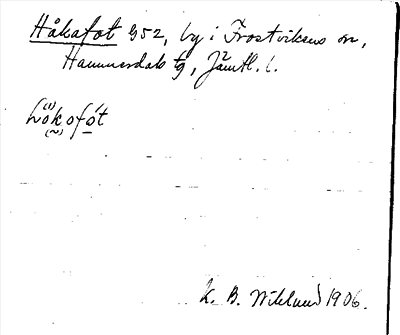 Håkafot G52, by i Frostvikens sn,
Hammerdals tg, Jämtl. l.
hòkofòt
K. B. Wiklund 1906.